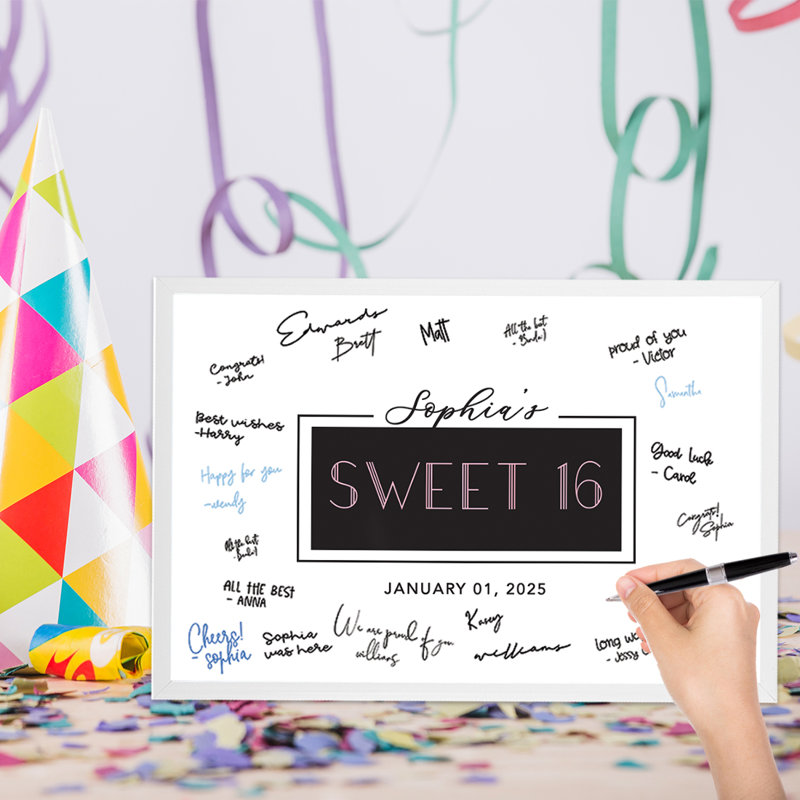 Edwards
Brett
Matt
All the best
- Benda!)
proud of you
- Victor
Congrats!
- John
Samantha
Sophia's
Best wishes
-Harry
SWEET 16
Good luck
- Carol
Happy for you
-wendy
Congrats!
Sophia
All the best
- Benda!)
ALL THE BEST
- ANNA
JANUARY 01, 2025
Cheers!
- Sophia
Sophia
was here
We are proud of you
williams
Kasey
williams
long
- Jessy